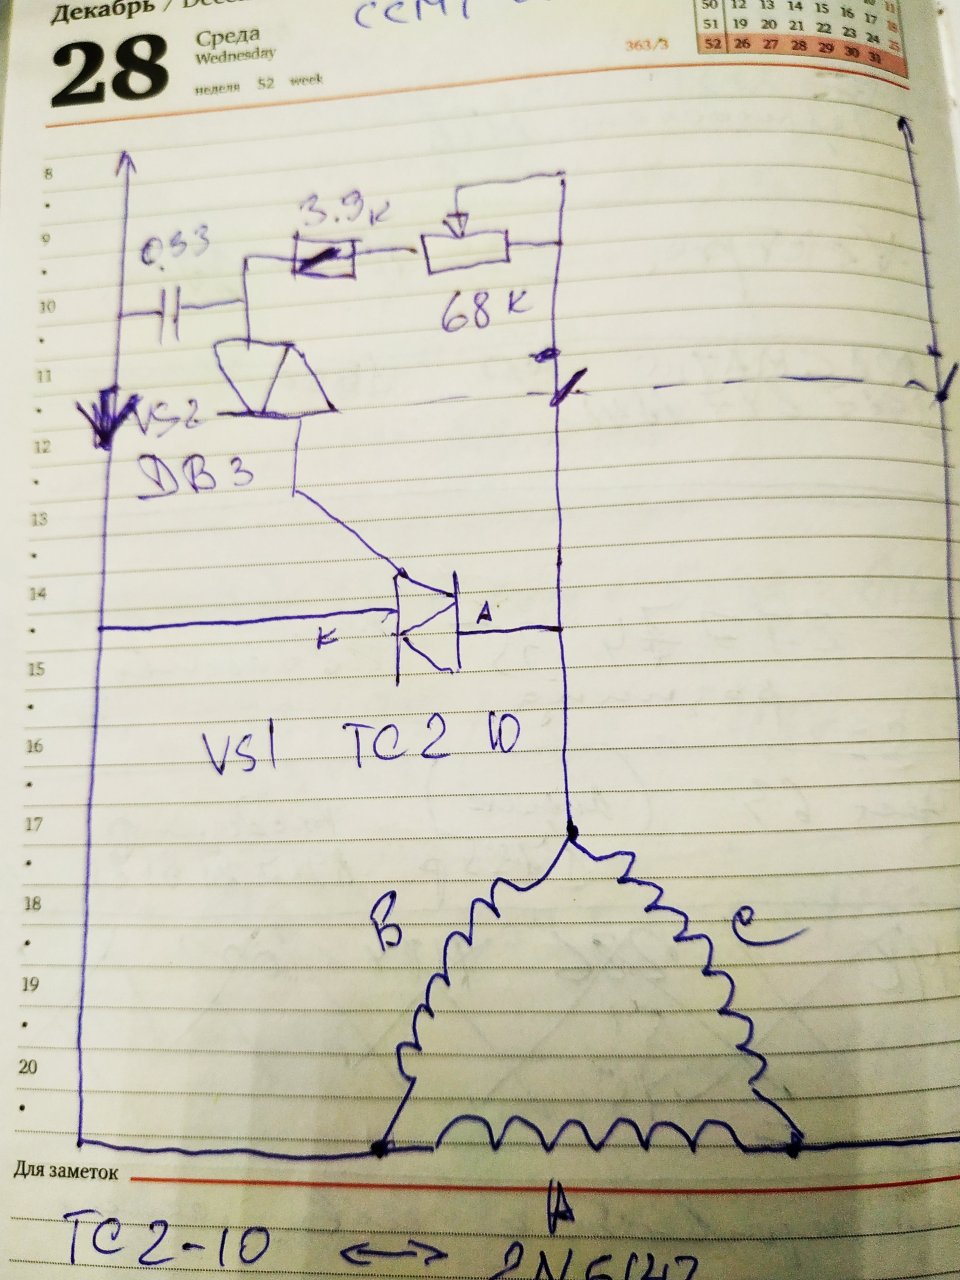 Декабрь /
28
Среда
Wednesday
неделя 52 week
363/3
50 12 13 14 15 16 17 18
51 19 20 21 22 23 24 25
52 26 27 28 29 30 31
8
3.9к
9
0.33
10
68 к
11
VS2
12
DB 3
13
14
к
А
15
16
VS1 ТС2 10
17
18
В
С
19
20
Для заметок
А
ТС2-10 ↔